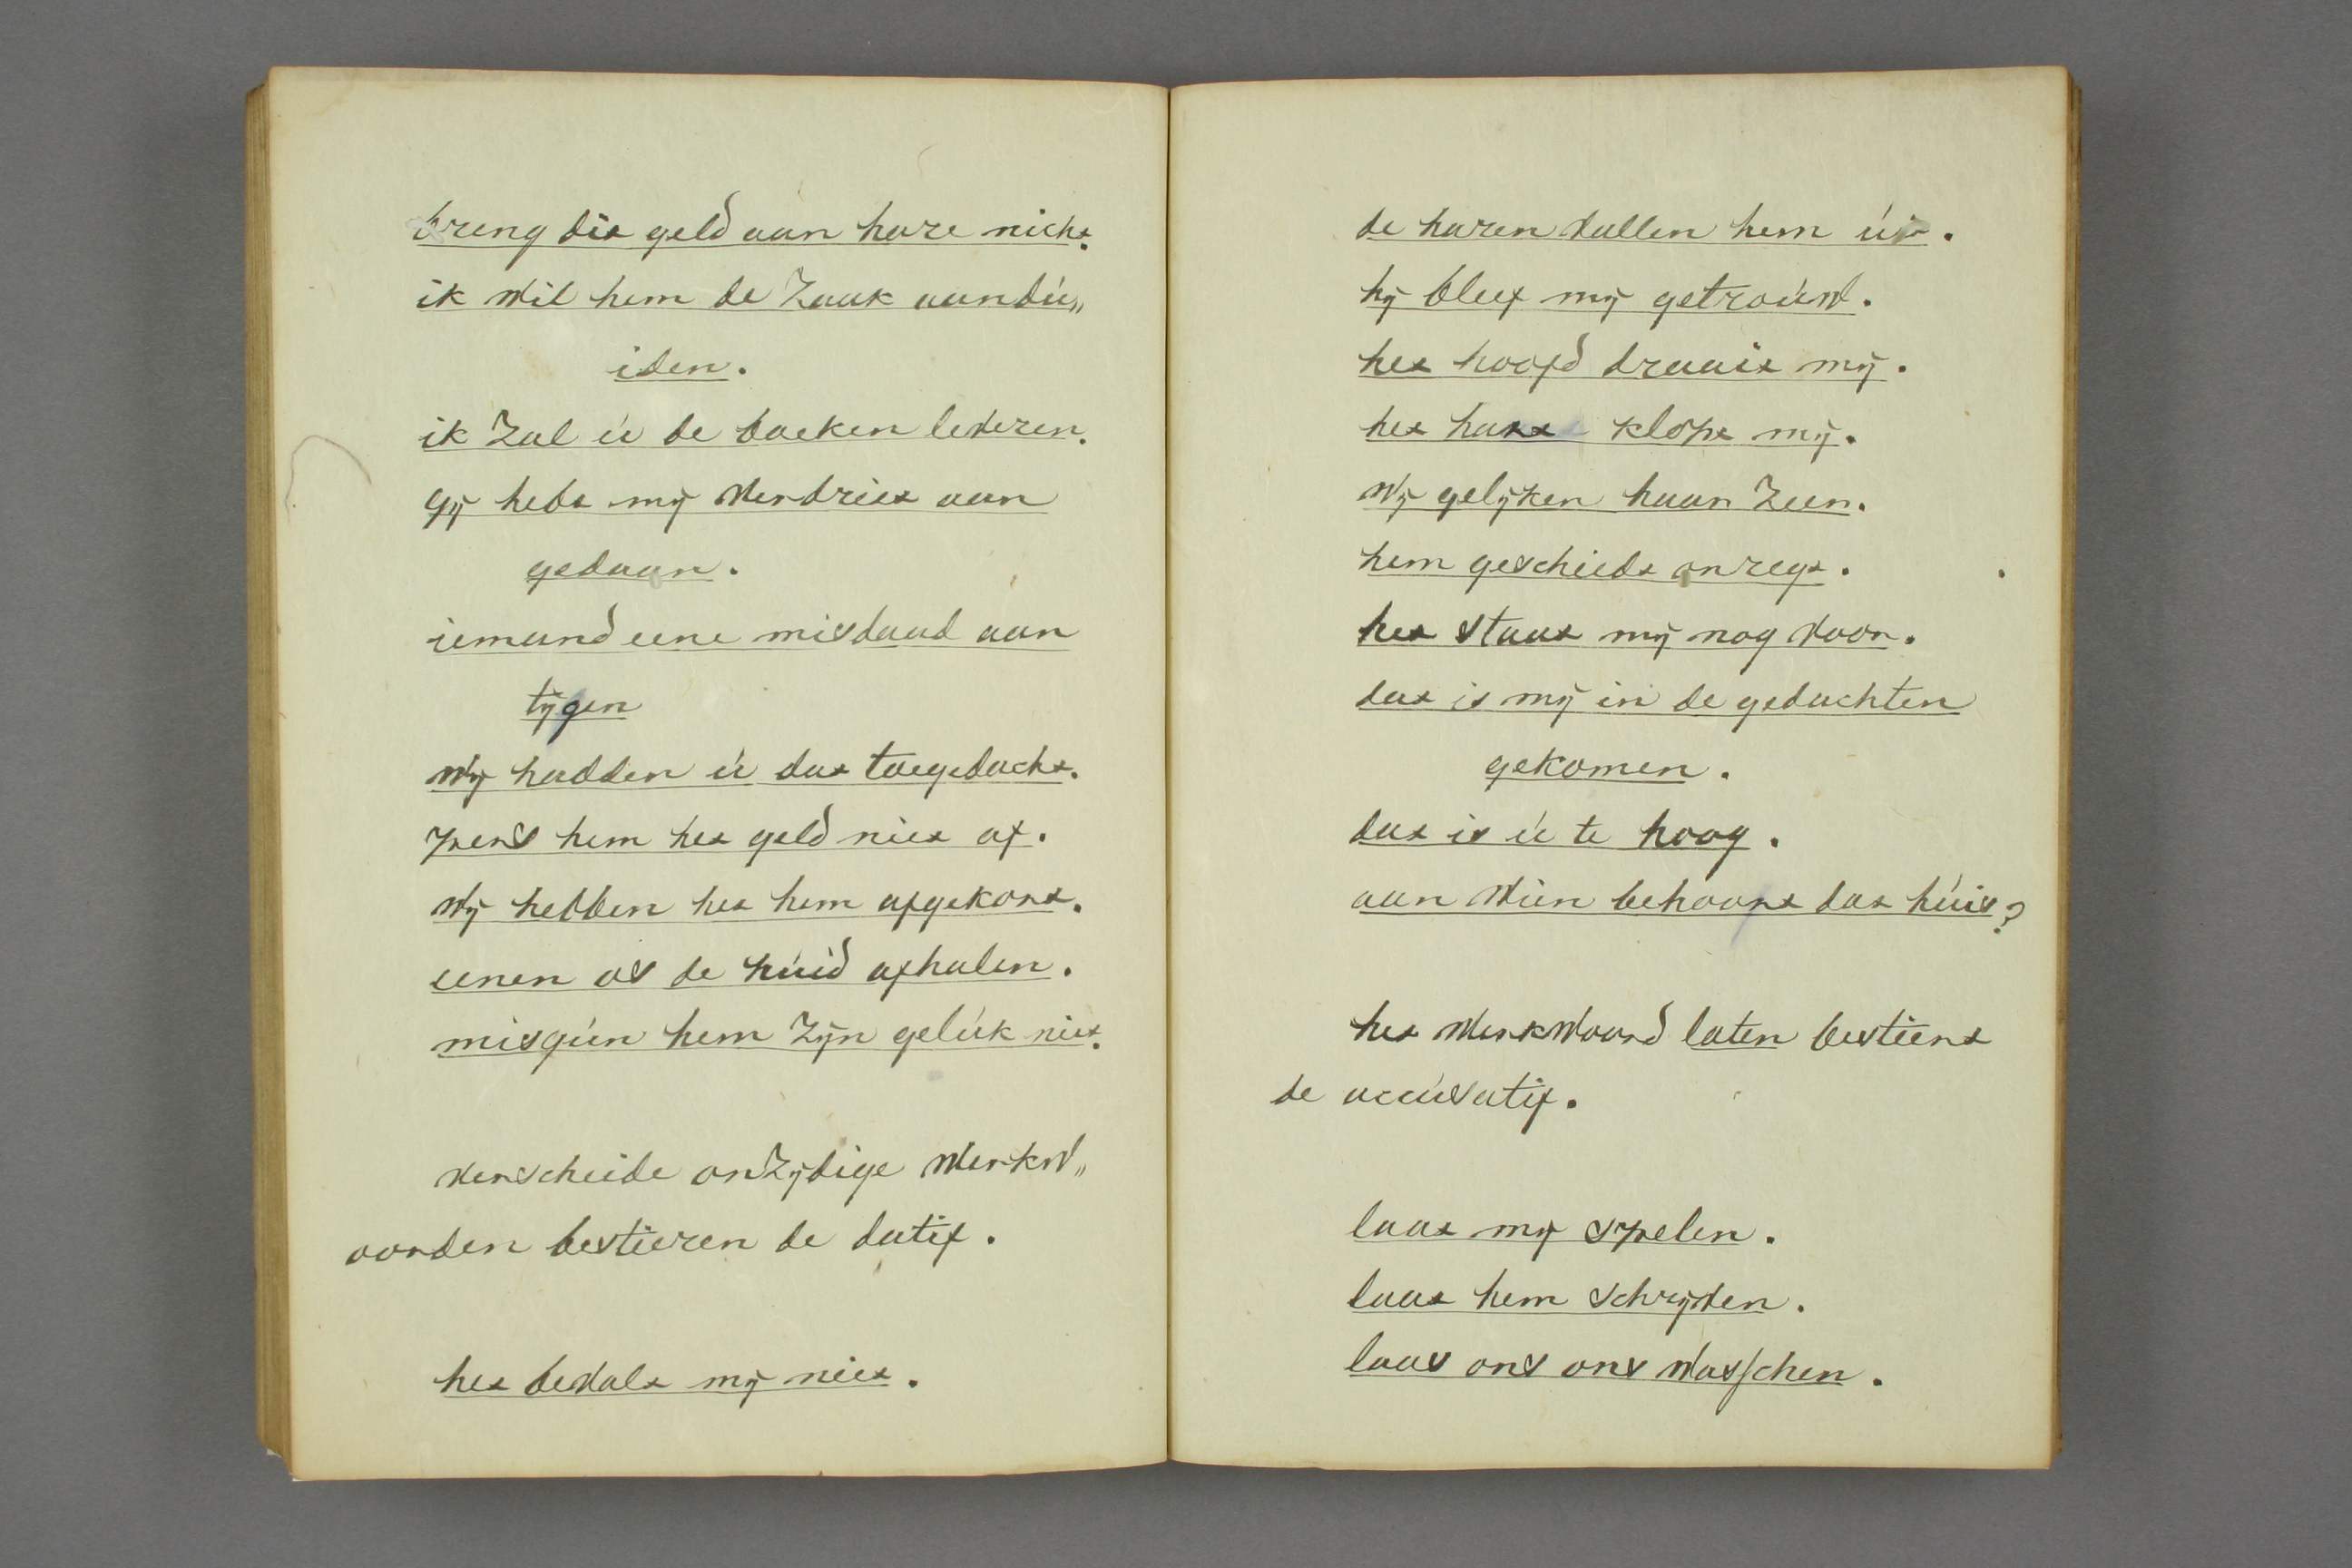 breng dit geld aan hare nicht.
ik wil hem de zaak aandú„
iden.
ik zal ú de boeken leveren.
gij hebt mij verdriet aan
gedaan.
iemand eene misdaad aan
tijgen
wij hadden ú dat toegedacht.
pers hem het geld niet af.
wij hebben het hem afgekort.
eenen os de húid afhalen.
misgún hem zijn gelúk niet.
verscheide onzijdige werkw„
oorden bestieren de datif.
het bevalt mij niet.
de haren vallen hem úit.
hij bleef mij getroúw.
het hoofd draait mij.
het hart klopt mij.
wij gelijken haar zeer.
hem geschiedt onregt.
het staat mij nog voor.
dat is mij in de gedachten
gekomen.
dat is ú te hoog.
aan wien behoort dat húis?
het werkwoord laten bestiert
de accúsatif.
laat mij spelen.
laat hem schrijven.
laas ons ons wasschen.